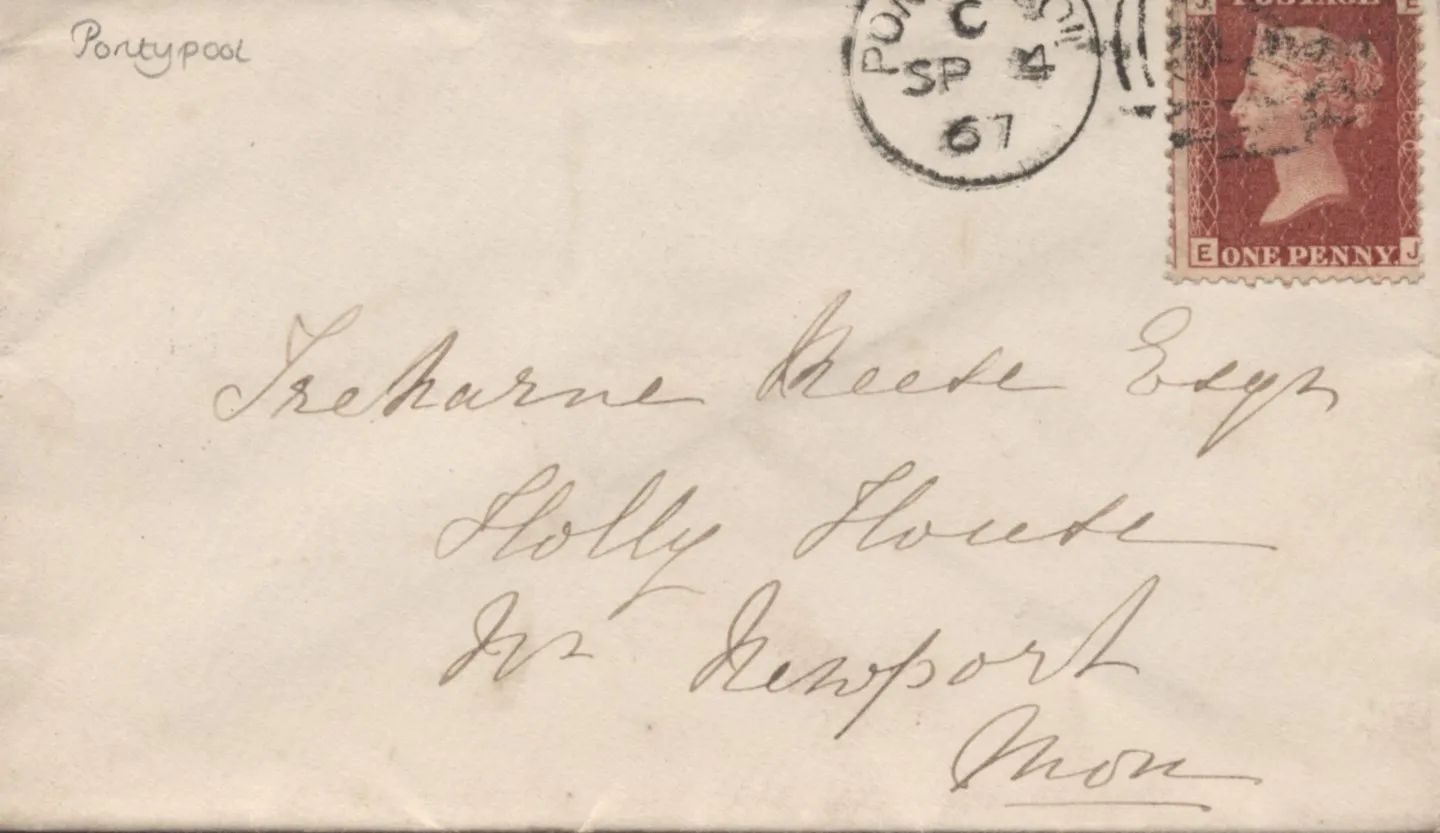 Pontypool
C
SP 4
67
J POSTAGE E
E ONE PENNY. J
Treharne Reese Esqr
Holly House
Nr Newport
Mon